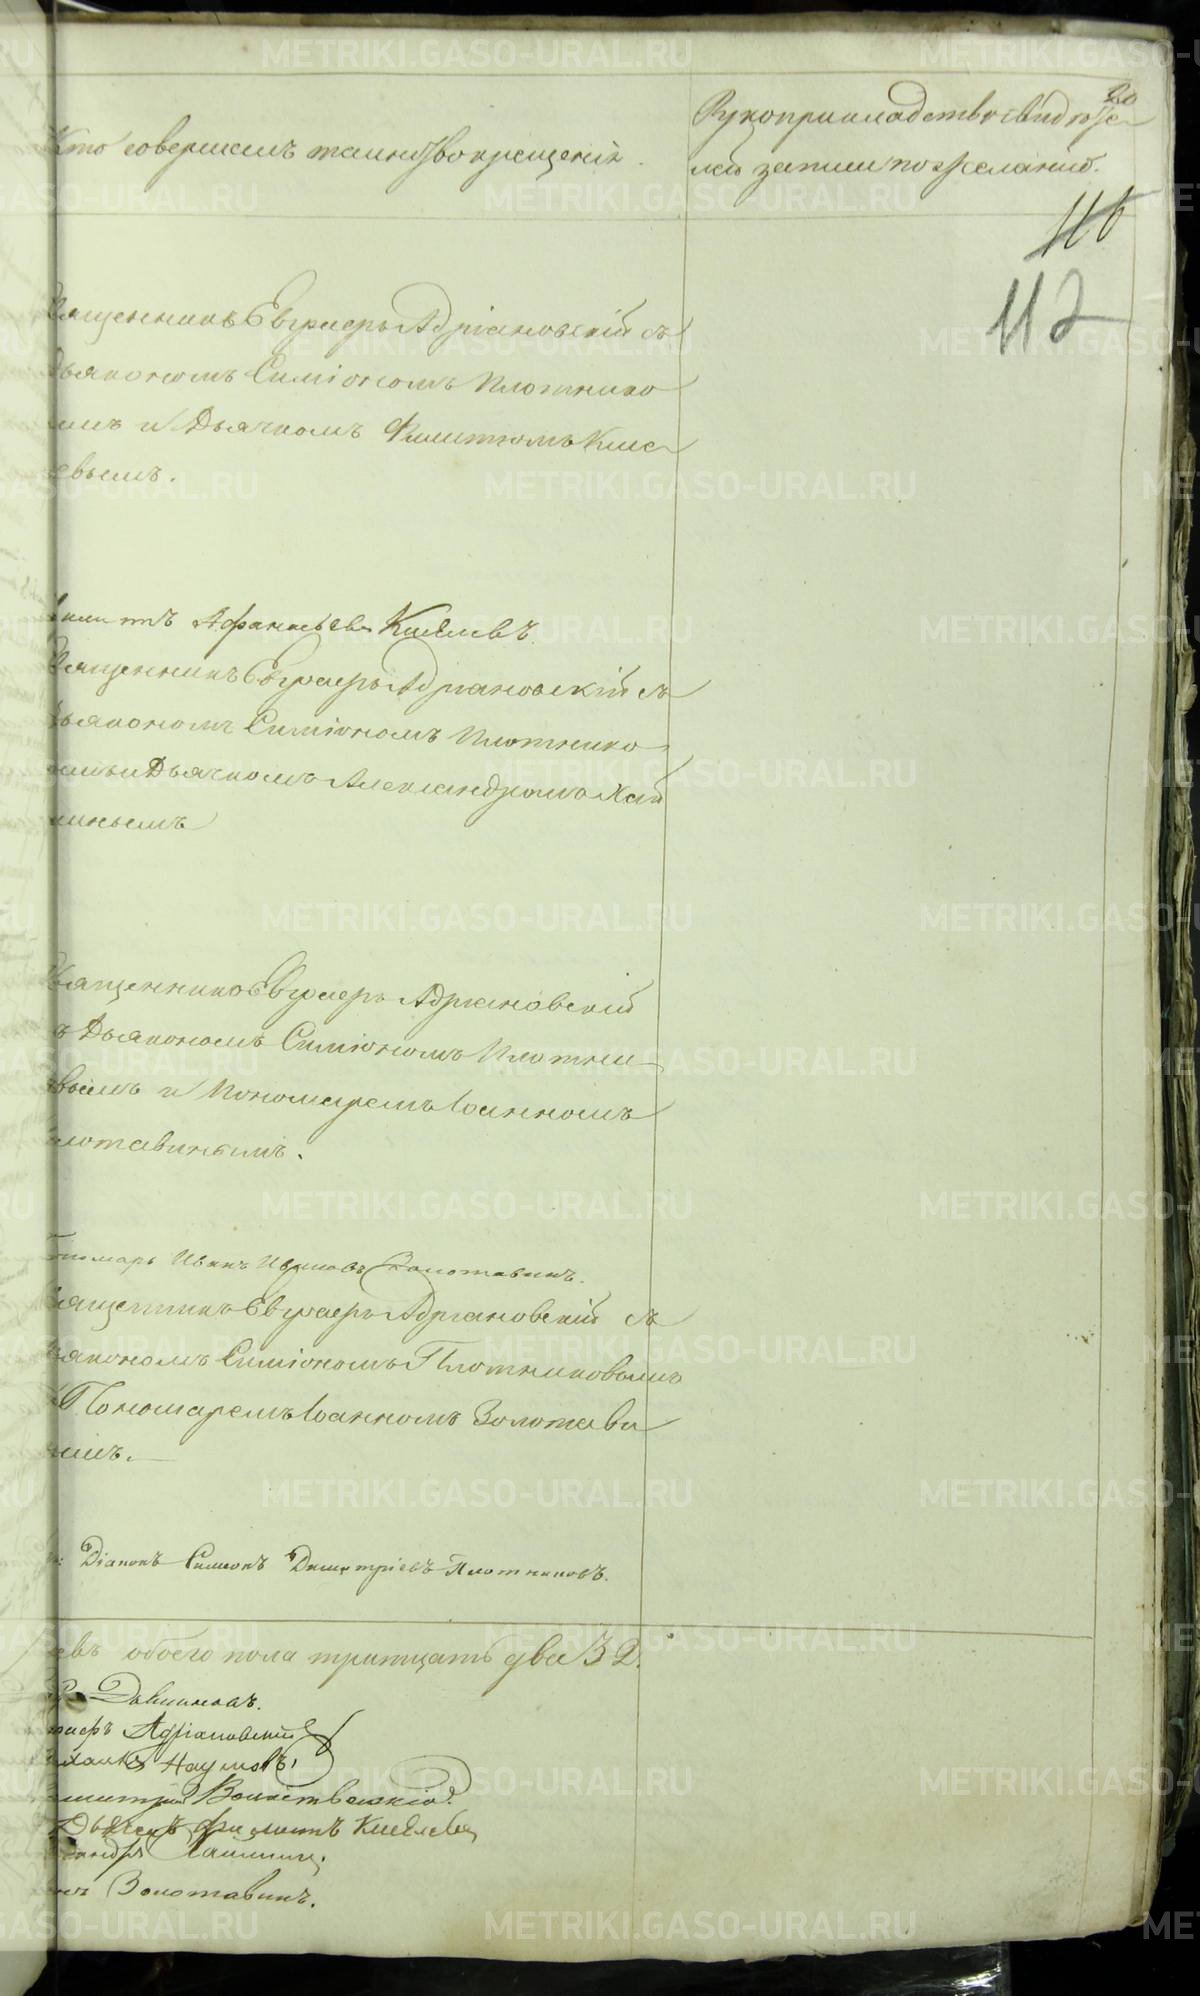 20
Кто совершалъ таинство крещенія.
Рукоприкладство свидѣте
лей записи по желанію.
116
112
Священникъ Евграфъ Адріановскій съ
Дьякономъ Симіономъ Плотнико
и Дьячкомъ Филитомъ Кисе
евымъ.
Афанасьевъ Киселевъ
Священникъ Евграфъ Адріановскій съ
Дьякономъ Симіономъ Плотнико
и Дьячкомъ Александромъ Хай
миныемъ
Священникъ Евграфъ Адріановскій
съ Дьякономъ Симіономъ Плотни
вымъ и Пономаремъ Іоанномъ
Золотавинымъ.
Пономарь Иванъ Ивановъ Золотавинъ.
Священникъ Евграфъ Адріановскій съ
Дьякономъ Симіономъ Плотниковымъ
Пономаремъ Іоанномъ Золотави
нымъ.
Діаконъ Симеонъ Димитріевъ Плотниковъ.
обоего пола тритцать два 32.
Адріановскій
Наумовъ
Дьячекъ Филитъ Киселевъ
Золотавинъ.
METRIKI.GASO-URAL.RU